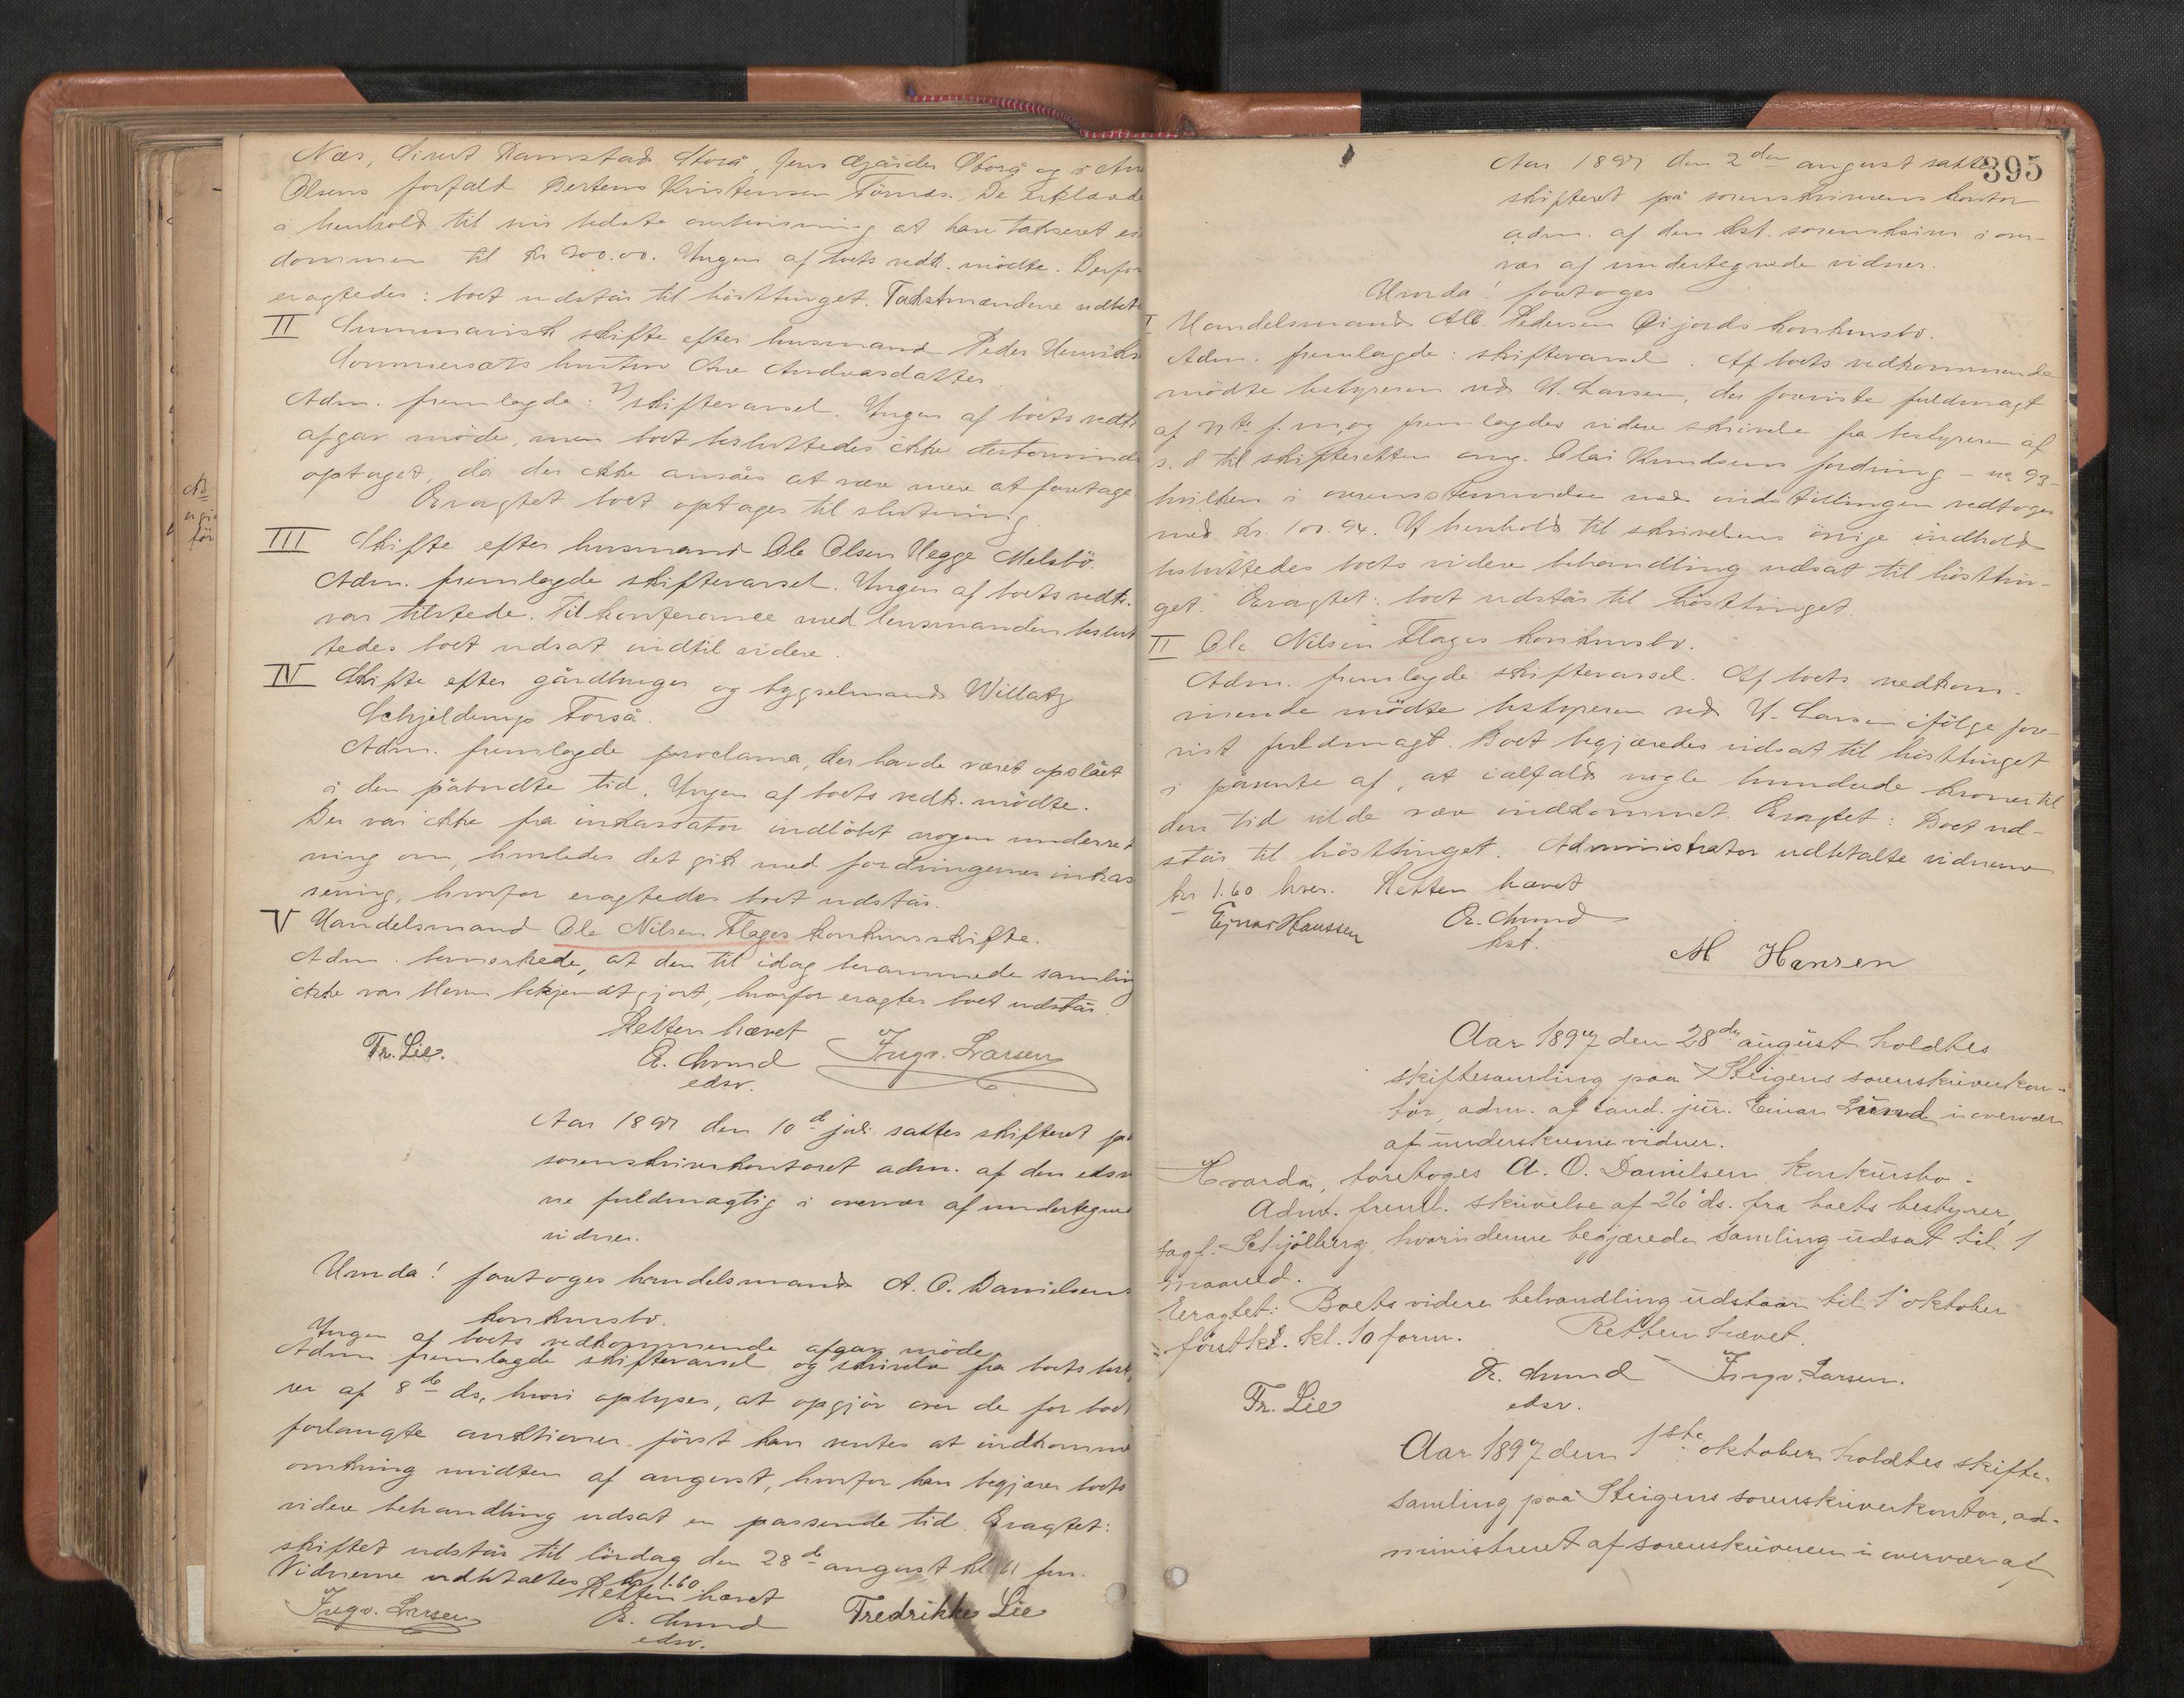 Næs, Sivert Ramstad Storå, Jens Gjæider Storå og i Ane
Olsens forfald Bertens Kristensen Törnes. De erklærede
i henhold til sin udste anvisning at have takseret ei
dommen til kr 200.00. Ingen af boets vedk. mödte. Derfor
eragtedes: boet udstår til hösttinget. Takstmændene udbet
II Summarisk skifte efter husmand Peder Henriks
Sommersæts hustru Ane Andreasdatter.
Adm. fremlagde: skiftevarsel. Ingen af boets vedk
afgav möde, men boet besluttedes ikke destomind
optaget, da der ikke ansåes at være mere at foretage.
Eragtet boet optages til slutning.
III Skifte efter husmand Ole Olsen Hegge Melsbö.
Adm. fremlagde skiftevarsel. Ingen af boets vedk.
var tilstede. Til konferance med lensmanden beslut
tedes boet udsat indtil videre.
IV Skifte efter gårdbruger og bygselmand Willatz
Schjelderup Forså.
Adm. fremlagde proclama, der havde været opslået
i den påbudte tid. Ingen af boets vedk. mödte.
Der var ikke fra inkassator indlöbet nogen underret
ning om, hvorledes det gik med fordringernes inkas
sering, hvorfor eragtedes boet udstår.
V Handelsmand Ole Nilsen Flages konkursskifte.
Adm. bemerkede, at den til idag berammede samling
ikke var bleven bekjendtgjort, hvorfor eragtes boet udstår.
Retten hævet
Fr. Lie. E. Lund Ingv. Larsen
edsv.
Aar 1897 den 10de juli sattes skifteret på
sorenskriverkontoret adm. af den edsv
ne fuldmægtig i overvær af undertegnede
vidner.
Hvorda! foretoges handelsmand A. O. Danielsens
konkursbo.
Ingen af boets vedkommende afgav möde.
Adm fremlagde skiftevarsel og skrivelse fra boets besty
rer af 8de ds, hvori oplyses, at opgjör over de for boet
forlangte auktioner först kan ventes at indkomme
omkring midten af august, hvorfor han begjærer boets
videre behandling udsat en passende tid. Eragtet:
skiftet udstår til lördag den 28de august kl 11 fm.
Vidnerne udbetaltes kr 1.60.
Retten hævet
Ingv. Larsen E. Lund Fredrikke Lie
edsv.
395
Aar 1897 den 2den august sattes
skifteret på sorenskriverens kontor
adm. af den kst. sorenskriver i over-
vær af undertegnede vidner.
Hvorda! foretoges
I Handelsmand Alb. Pedersen Öijords konkursbo.
Adm. fremlagde: skiftevarsel. Af boets vedkommende
mödte bestyreren ved I. Larsen, der foreviste fuldmagt
af f. m, og fremlagdes videre skrivelse fra bestyreren af
s. d til skifteretten ang. Olai Knudsens fordring – no 93 –
hvilken i overensstemmelse med indstillingen vedtoges
med kr. 100.94. I henhold til skrivelsens övrige indhold
besluttedes boets videre behandling udsat til hösttin-
get. Eragtet: boet udstår til hösttinget.
II Ole Nilsen Flages konkursbo.
Adm. fremlagde skiftevarsel. Af boets vedkom-
mende mödte bestyreren ved I. Larsen ifölge fore-
vist fuldmagt. Boet begjæredes udsat til hösttinget
i påvente af, at ialfald nogle hundrede kroner til
den tid vilde være indkommet. Eragtet: Boet ud-
står til hösttinget. Administrator udbetalte vidnerne
kr 1.60 hver. Retten hævet
Ejnar Hanssen E. Lund
kst.
M Hansen
Aar 1897 den 28de august holdtes
skiftesamling paa Steigens sorenskriverkon-
tor, adm. af cand. jur. Einar Lund i overvær
af underskrevne vidner.
Hvorda, foretoges A. O. Danielsen konkursbo.
Adm. freml. skrivelse af 26 ds. fra boets bestyrer,
sagf. Schjölberg, hvori denne begjærede samling udsat til 1
maaned.
Eragtet: Boets videre behandling udstaar til 1 oktober
förstk. kl. 10 form. Retten hævet.
E. Lund Ingv. Larsen.
Fr. Lie edsv.
Aar 1897 den 1ste oktober holdtes skifte-
samling paa Steigens sorenskriverkontor, ad-
ministreret af sorenskriveren i overvær af